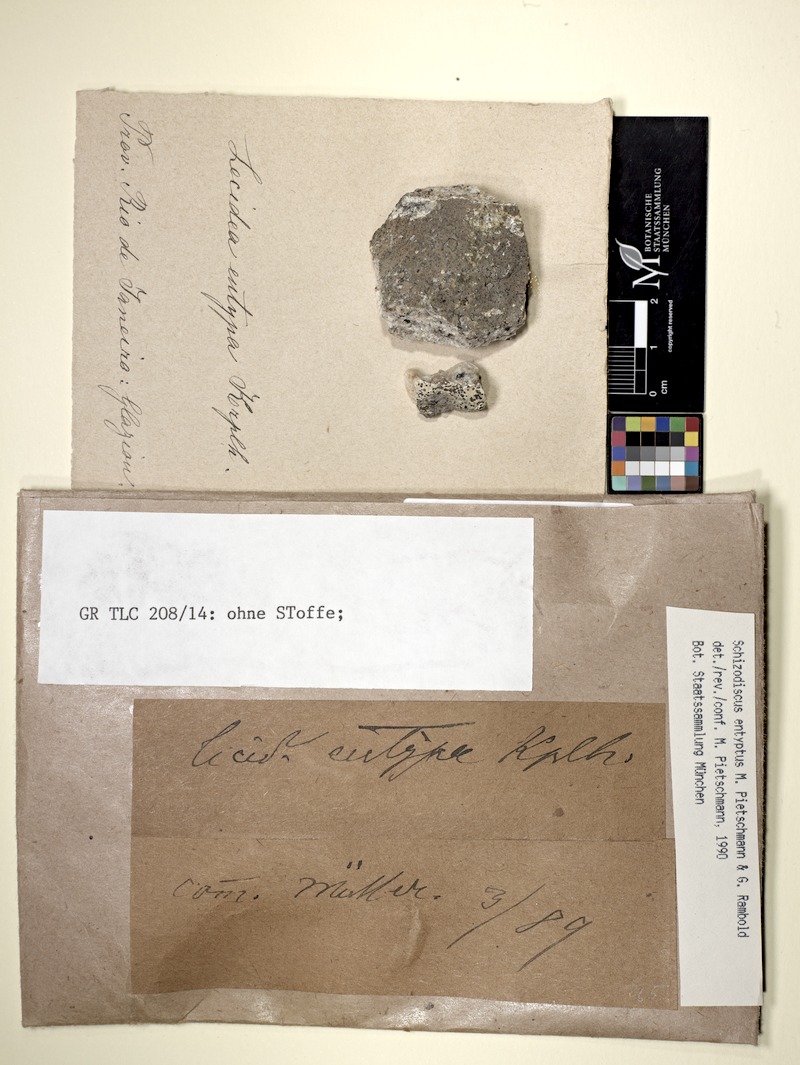 Lecidea entypa Krplh.
Prov. Rio de Janeiro: Glaziou.
BOTANISCHE
STAATSSAMMLUNG
MÜNCHEN
copyright reserved
0 1 2
cm
GR TLC 208/14: ohne SToffe;
Schizodiscus entyptus M. Pietschmann & G. Rambold
det./rev./conf. M. Pietschmann, 1990
Bot. Staatssammlung München
Lecid. entypa Kplh.
com. Müller. 3/89